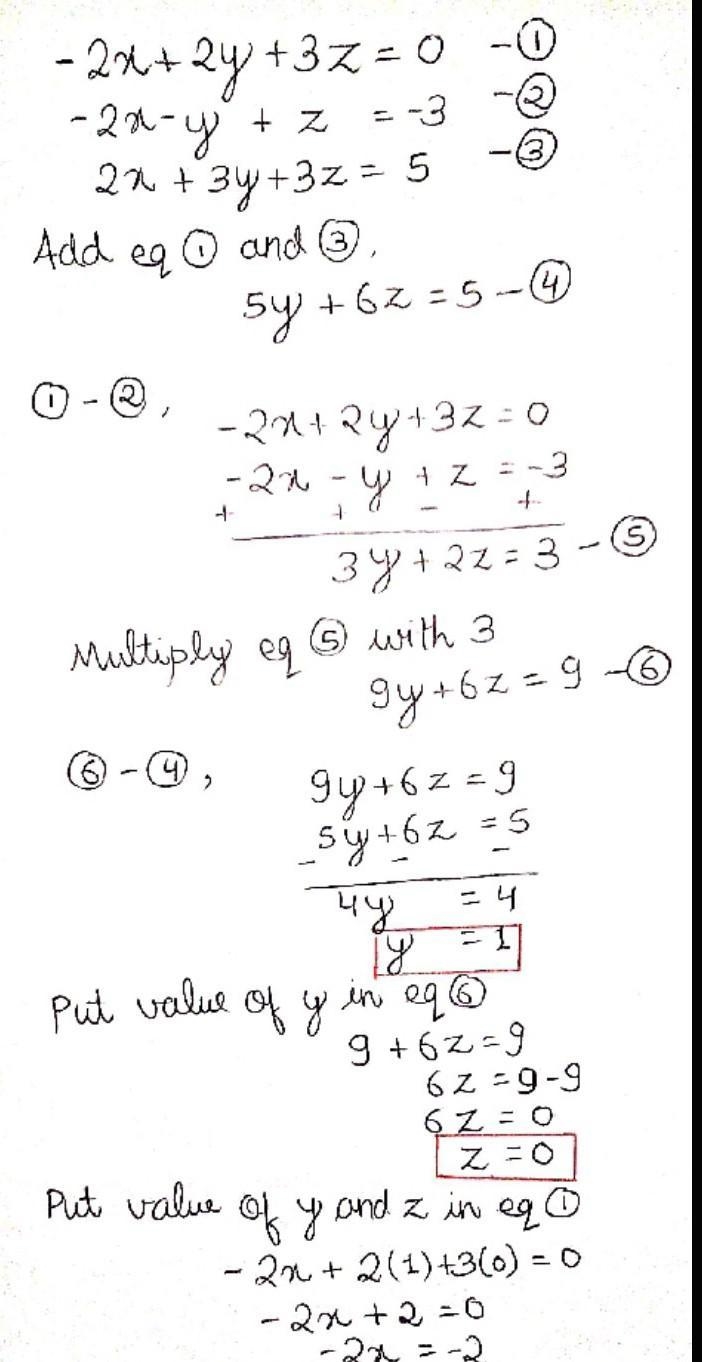 -2x + 2y + 3z = 0 -①
-2x - y + z = -3 -②
2x + 3y + 3z = 5 -③
Add eq ① and ③,
5y + 6z = 5 -④
① - ②,
-2x + 2y + 3z = 0
-2x - y + z = -3
+ + - +
3y + 2z = 3 -⑤
Multiply eq ⑤ with 3
9y + 6z = 9 -⑥
⑥ - ④,
9y + 6z = 9
5y + 6z = 5
- - -
4y = 4
y = 1
Put value of y in eq ⑥
9 + 6z = 9
6z = 9 - 9
6z = 0
z = 0
Put value of y and z in eq ①
-2x + 2(1) + 3(0) = 0
-2x + 2 = 0
-2x = -2